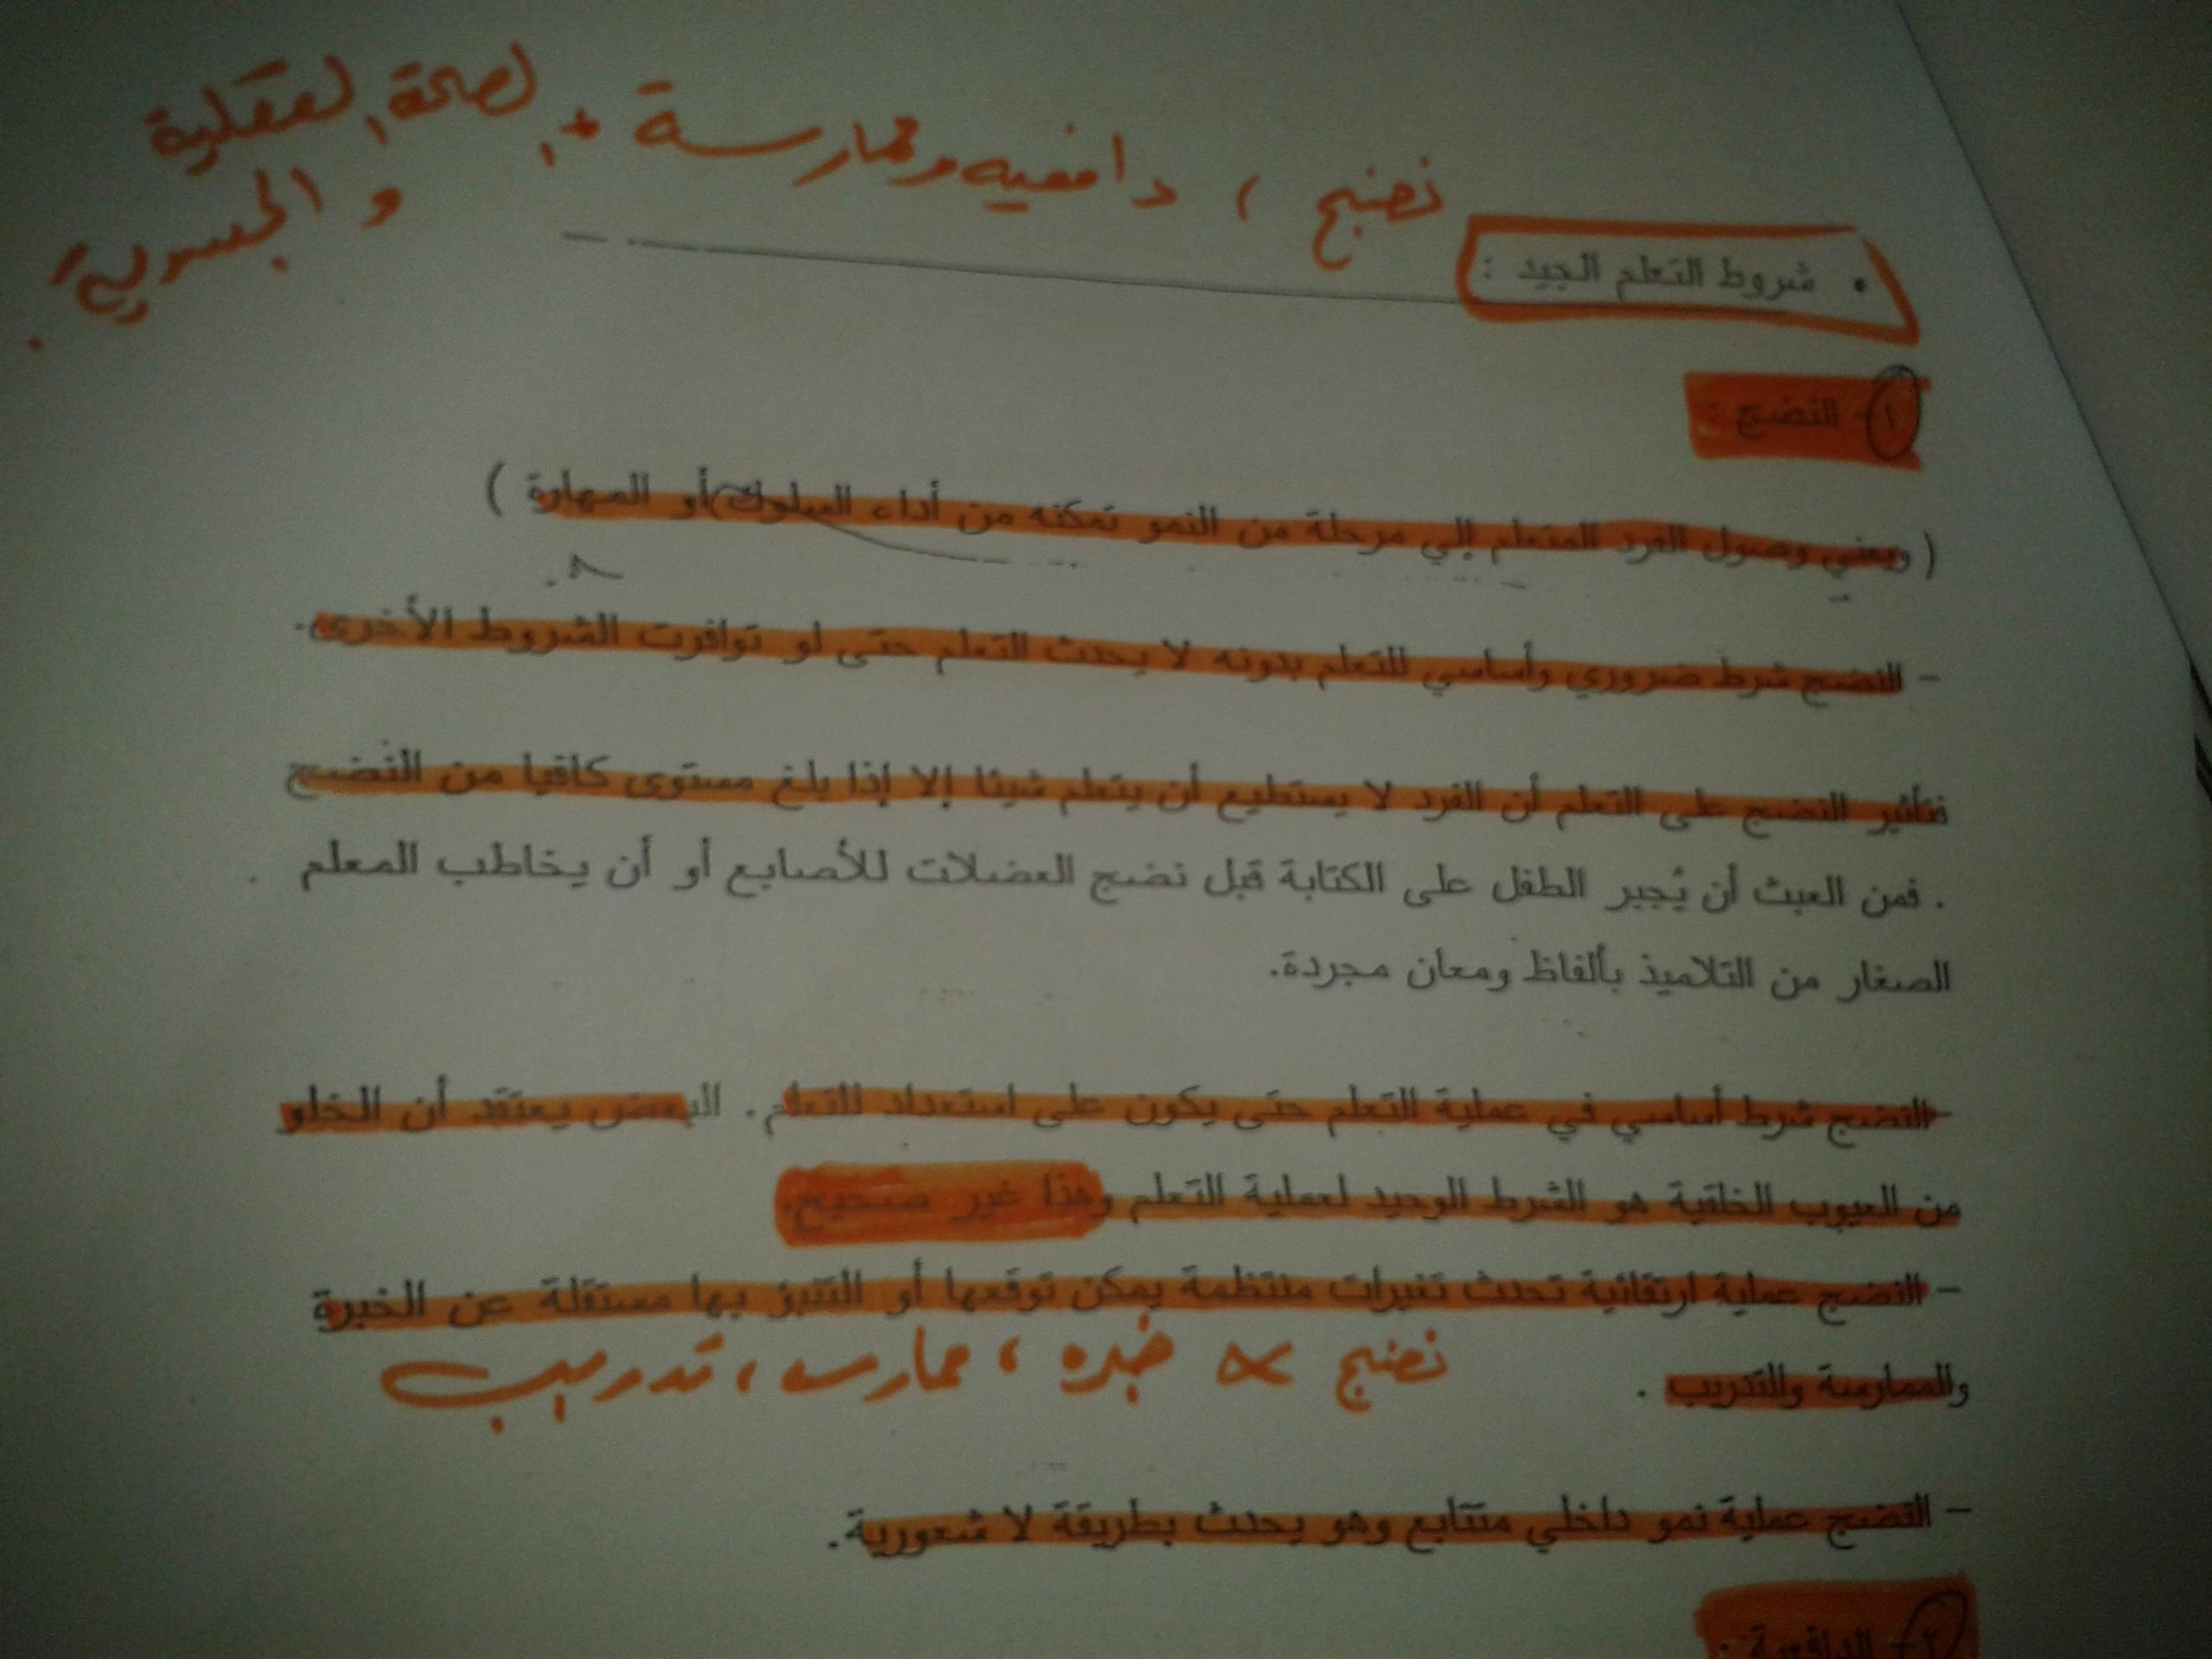 نضج ، دافعيه وممارسة + الصحة العقلية
والجسدية.
• شروط التعلم الجيد :
١- النضج :
( ويعني وصول الفرد المتعلم إلي مرحلة من النمو تمكنه من أداء السلوك أو المهارة )
- النضج شرط ضروري وأساسي للتعلم بدونه لا يحدث التعلم حتى لو توافرت الشروط الأخرى.
فتأثير النضج على التعلم أن الفرد لا يستطيع أن يتعلم شيئا إلا إذا بلغ مستوى كافيا من النضج
. فمن العبث أن يُجبر الطفل على الكتابة قبل نضج العضلات للأصابع أو أن يخاطب المعلم
الصغار من التلاميذ بألفاظ ومعان مجردة.
-النضج شرط أساسي في عملية التعلم حتى يكون على استعداد للتعلم. البعض يعتقد أن الخلو
من العيوب الخلقية هو الشرط الوحيد لعملية التعلم وهذا غير صحيح.
- النضج عملية ارتقائية تحدث تغيرات منتظمة يمكن توقعها أو التنبؤ بها مستقلة عن الخبرة
والممارسة والتدريب .
نضج خبره ، ممارسه ، تدريب
- النضج عملية نمو داخلي متتابع وهو يحدث بطريقة لا شعورية.
٢- الدافعية :